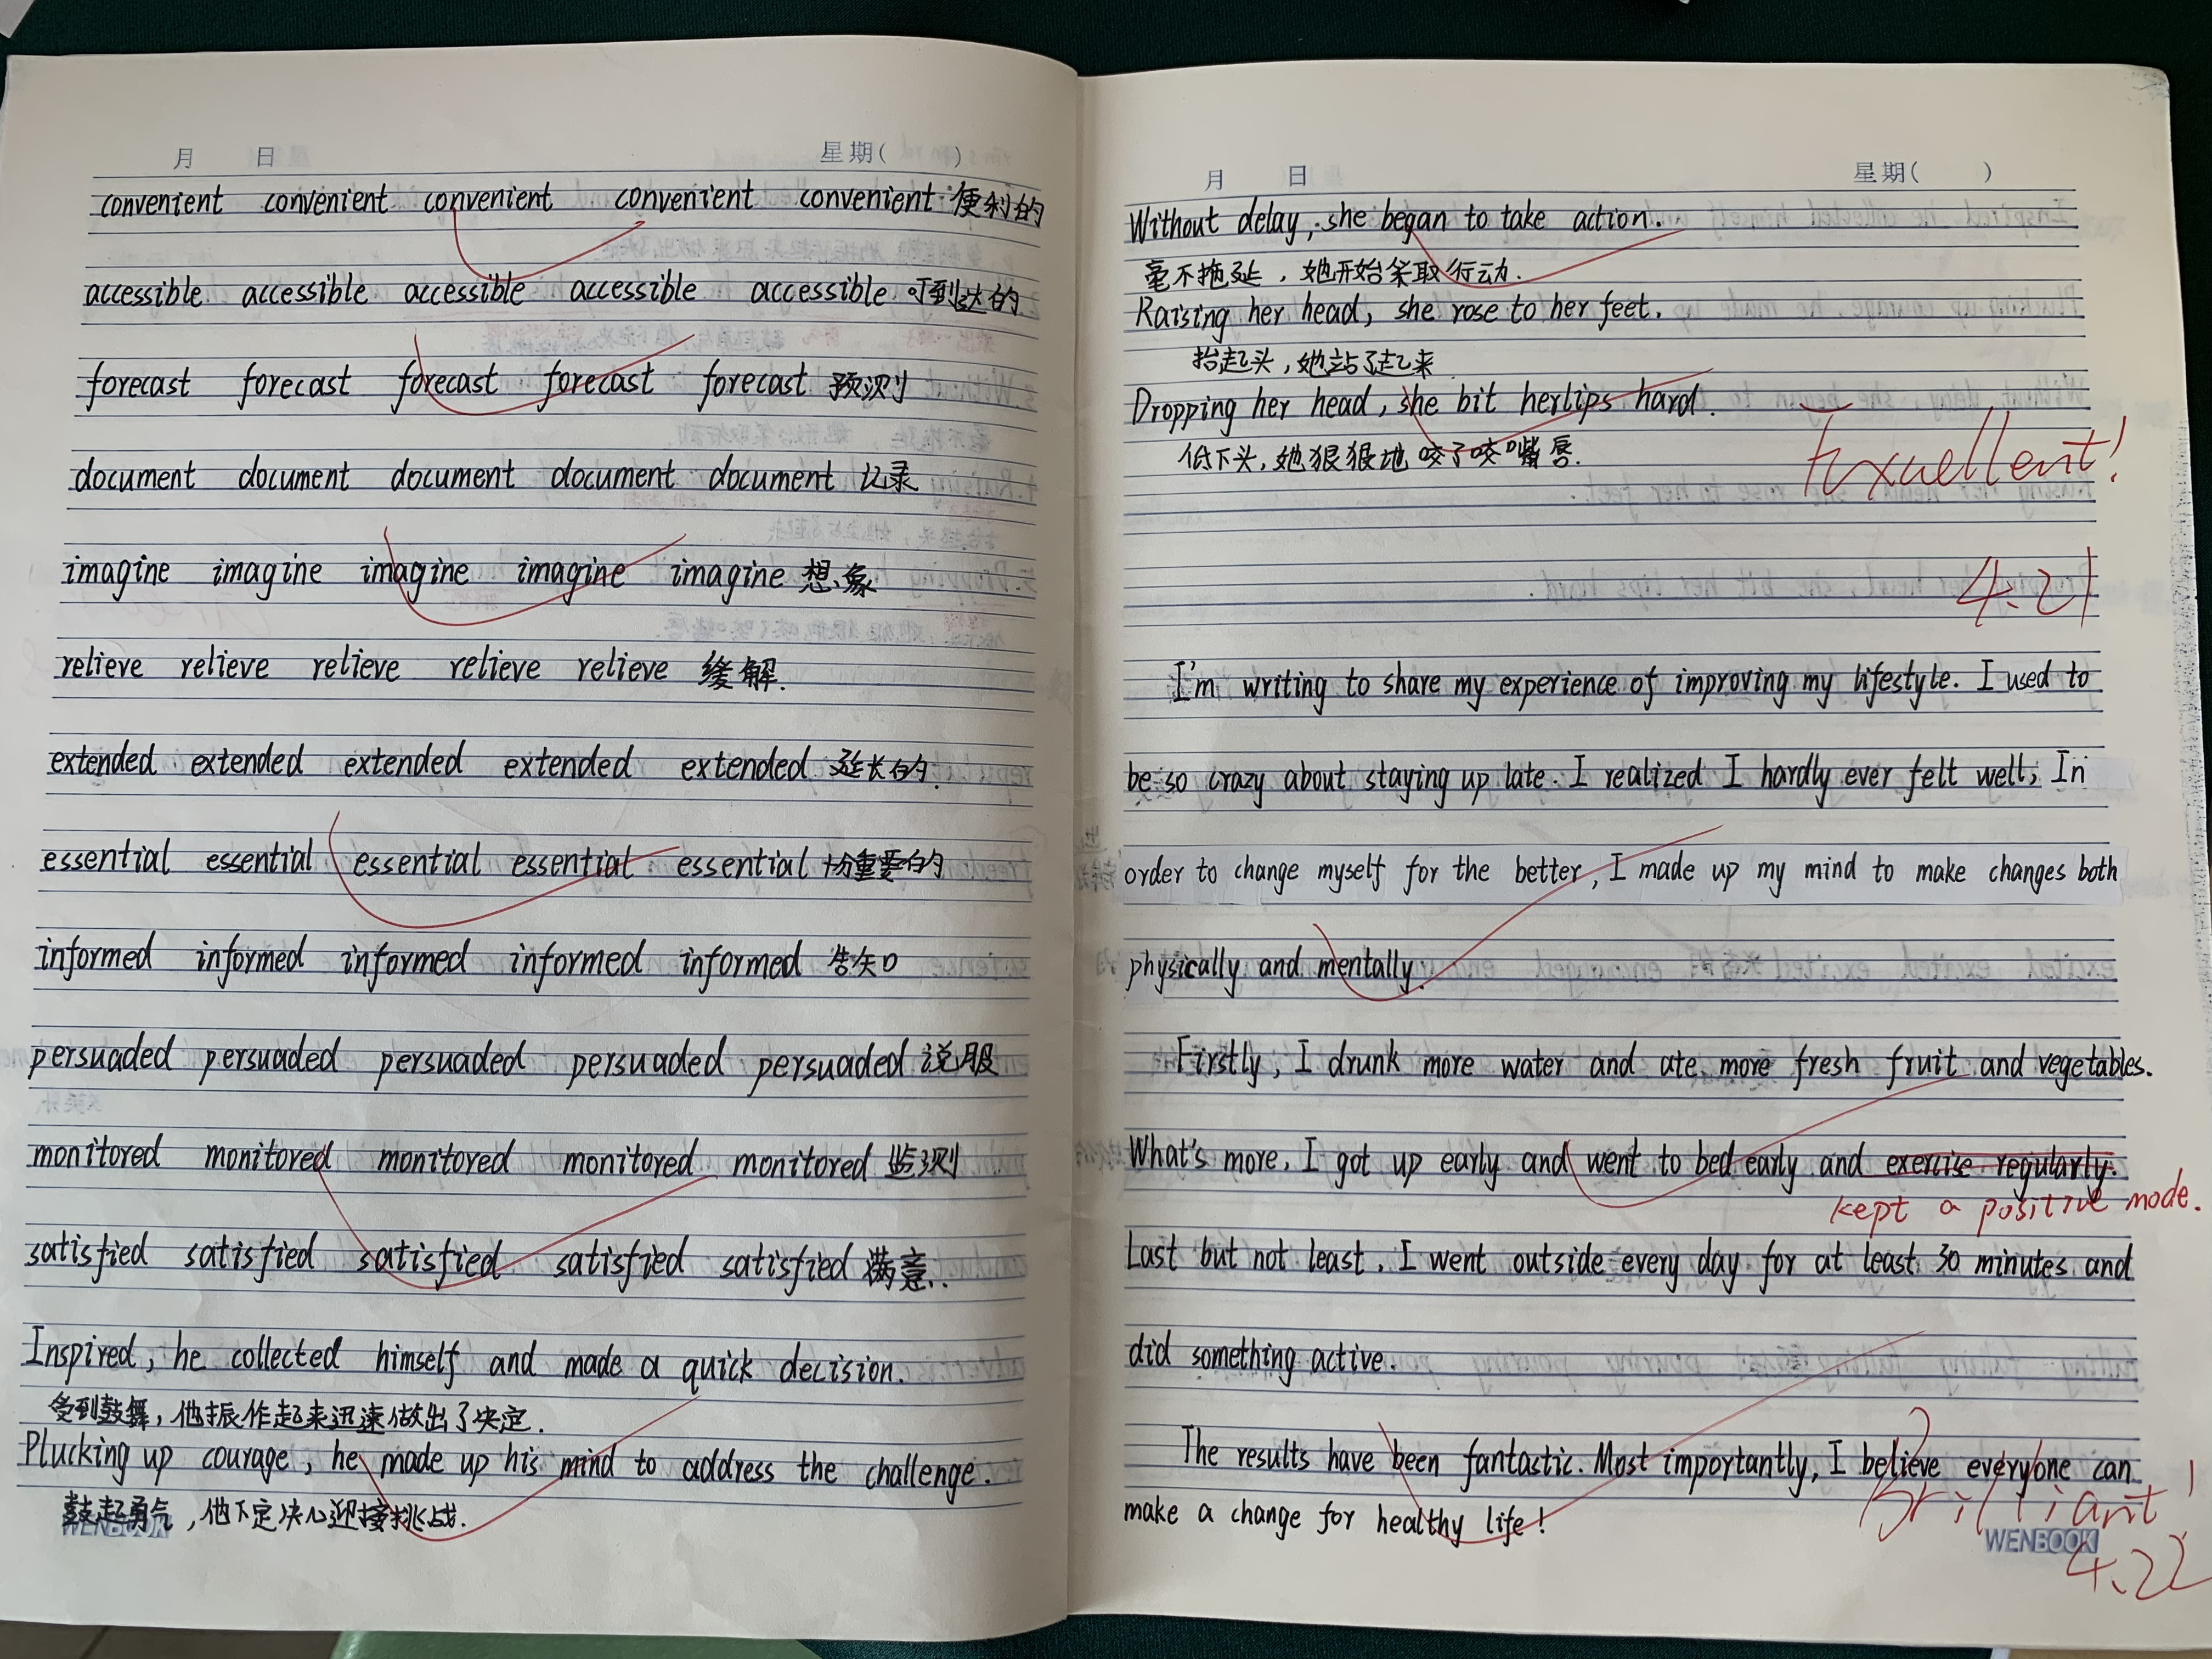 月 日 星期( )
convenient convenient convenient convenient convenient 便利的
accessible accessible accessible accessible accessible 可到达的
forecast forecast forecast forecast forecast 预测
document document document document document 记录
imagine imagine imagine imagine imagine 想象
relieve relieve relieve relieve relieve 缓解.
extended extended extended extended extended 延长的.
essential essential essential essential essential 十分重要的
informed informed informed informed informed 告知
persuaded persuaded persuaded persuaded persuaded 说服
monitored monitored monitored monitored monitored 监测
satisfied satisfied satisfied satisfied satisfied 满意.
Inspired, he collected himself and made a quick decision.
受到鼓舞，他振作起来迅速做出了决定.
Plucking up courage, he made up his mind to address the challenge.
鼓起勇气，他下定决心迎接挑战.
WENBOOK
月 日 星期( )
Without delay, she began to take action.
毫不拖延，她开始采取行动.
Raising her head, she rose to her feet.
抬起头，她站了起来
Dropping her head, she bit her lips hard.
低下头，她狠狠地咬了咬嘴唇.
Exuellent!
4.21
I'm writing to share my experience of improving my lifestyle. I used to
be so crazy about staying up late. I realized I hardly ever felt well, In
order to change myself for the better, I made up my mind to make changes both
physically and mentally.
Firstly, I drunk more water and ate more fresh fruit and vegetables.
What's more, I got up early and went to bed early and exercise regularly.
kept a positive mode.
Last but not least, I went outside every day for at least 30 minutes and
did something active.
The results have been fantastic. Most importantly, I believe everyone can
make a change for healthy life!
Brilliant!
WENBOOK
4.22